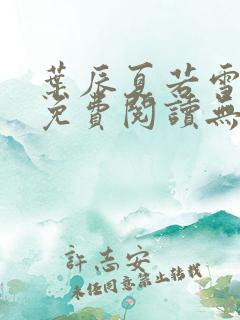 葉辰夏若雪
免費閱讀無
許志安
未經同意禁止轉載